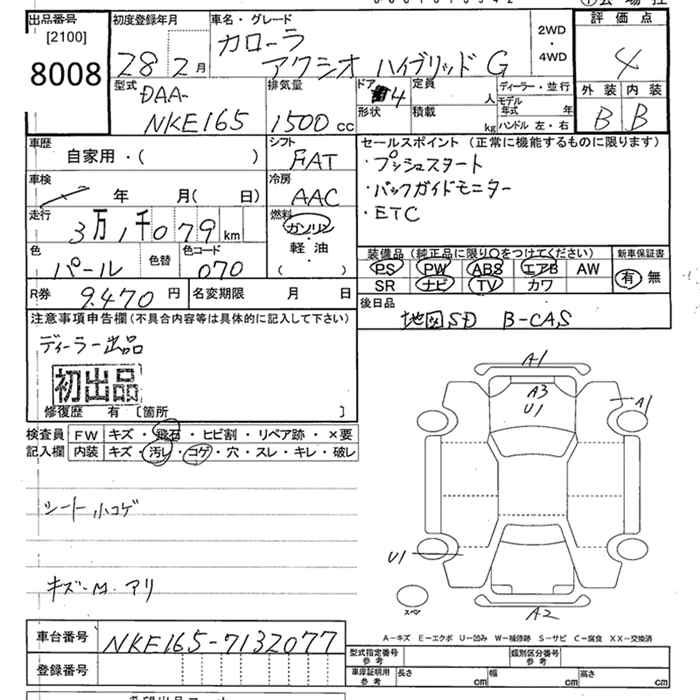 出品番号
[2100]
8008
初度登録年月
28 2月
車名・グレード
カローラ
アクシオ ハイブリッド G
2WD
・
4WD
評価点
4
型式
DAA-
NKE165
排気量
1500 cc
ドア 4
形状
定員 人
積載 kg
ディーラー・並行
モデル年式 年
ハンドル 左・右
外装 内装
B B
車歴
自家用・( )
シフト
FAT
車検
年 月( 日)
冷房
AAC
走行
3万1千079 km
燃料
ガソリン
・
軽・油
( )
色
パール
色替
色コード
070
R券 9.470 円
名変期限 月 日
セールスポイント(正常に機能するものに限ります)
・プッシュスタート
・バックガイドモニター
・ETC
装備品(純正品に限り○をつけてください)
新車保証書
PS PW ABS エアB AW
SR ナビ TV カワ
有 無
後日品
地図SD B-CAS
注意事項申告欄(不具合内容等は具体的に記入して下さい)
ディーラー出品
初出品
修復歴 有 〔箇所 〕
検査員
記入欄
FW キズ・飛石・ヒビ割・リペア跡・×要
内装 キズ・汚レ・コゲ・穴・スレ・キレ・破レ
シート小コゲ
キズ・M アリ
A1
A3
U1
A1
U1
A2
スペア
A-キズ E-エクボ U-凹み W-補修跡 S-サビ C-腐食 XX-交換済
車台番号 NKE165-7132077
登録番号
型式指定番号
参考
類別区分番号
参考
車庫証明用
参考
長さ cm
幅 cm
高さ cm